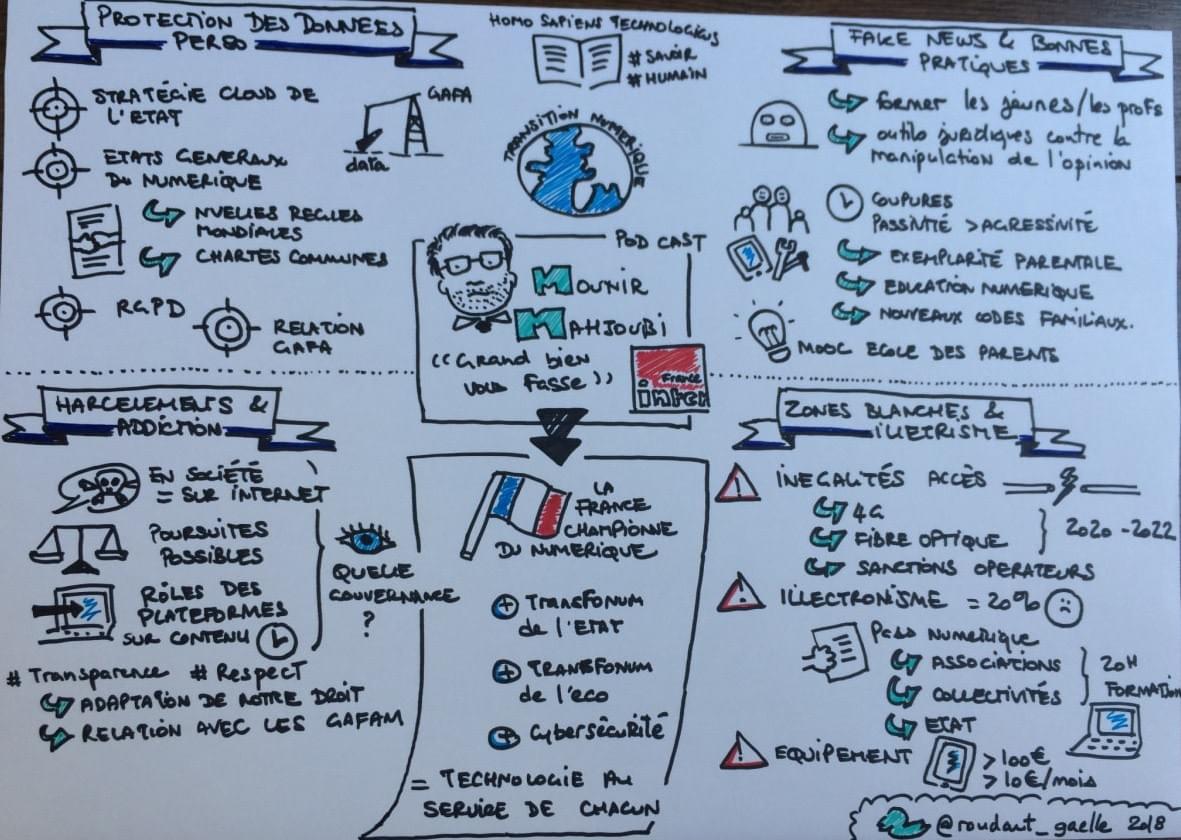 PROTECTION DES DONNEES
PERSO
STRATÉGIE CLOUD DE
L'ETAT
GAFA
data
ETATS GENERAUX
DU NUMERIQUE
NVELLES REGLES
MONDIALES
CHARTES COMMUNES
RGPD
RELATION
GAFA
HOMO SAPIENS TECHNOLOGICUS
# SAVOIR
# HUMAIN
TRANSITION NUMERIQUE
POD CAST
MOUNIR
MAHJOUBI
<< Grand bien
vous Fasse >>
France
inter
FAKE NEWS & BONNES
PRATIQUES
former les jeunes/les profs
outils juridiques contre la
manipulation de l'opinion
COUPURES
PASSIVITÉ > AGRESSIVITÉ
EXEMPLARITÉ PARENTALE
EDUCATION NUMERIQUE
NOUVEAUX CODES FAMILIAUX.
MOOC ECOLE DES PARENTS
HARCELEMENTS &
ADDICTION
EN SOCIÉTÉ
= SUR INTERNET
POURSUITES
POSSIBLES
RÔLES DES
PLATEFORMES
SUR CONTENU
QUELLE
GOUVERNANCE
?
# Transparence # Respect
ADAPTATION DE NOTRE DROIT
RELATION AVEC LES GAFAM
LA
FRANCE
CHAMPIONNE
DU NUMERIQUE
+ TRANSFONUM
de l'ETAT
+ TRANSFONUM
de l'eco
+ Cybersécurité
= TECHNOLOGIE AU
SERVICE DE CHACUN
ZONES BLANCHES &
ILLETRISME
INEGALITÉS ACCÈS
4G
FIBRE OPTIQUE
2020 - 2022
SANCTIONS OPERATEURS
ILLECTRONISME = 20%
Pass Numérique
ASSOCIATIONS
COLLECTIVITÉS
ETAT
20H
FORMATION
EQUIPEMENT
> 100€
> 10€/mois
@roudaut_gaelle 2018